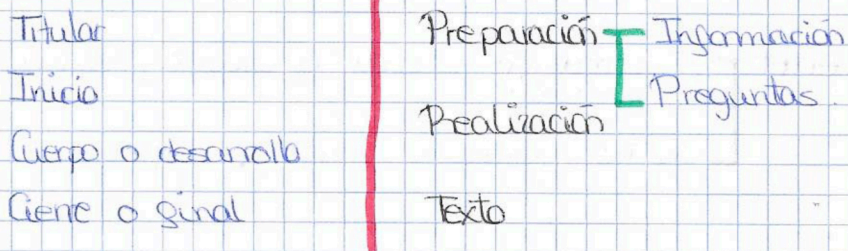 Titular
Inicio
Cuerpo o desarrollo
Cierre o final
Preparación
Información
Preguntas.
Realización
Texto